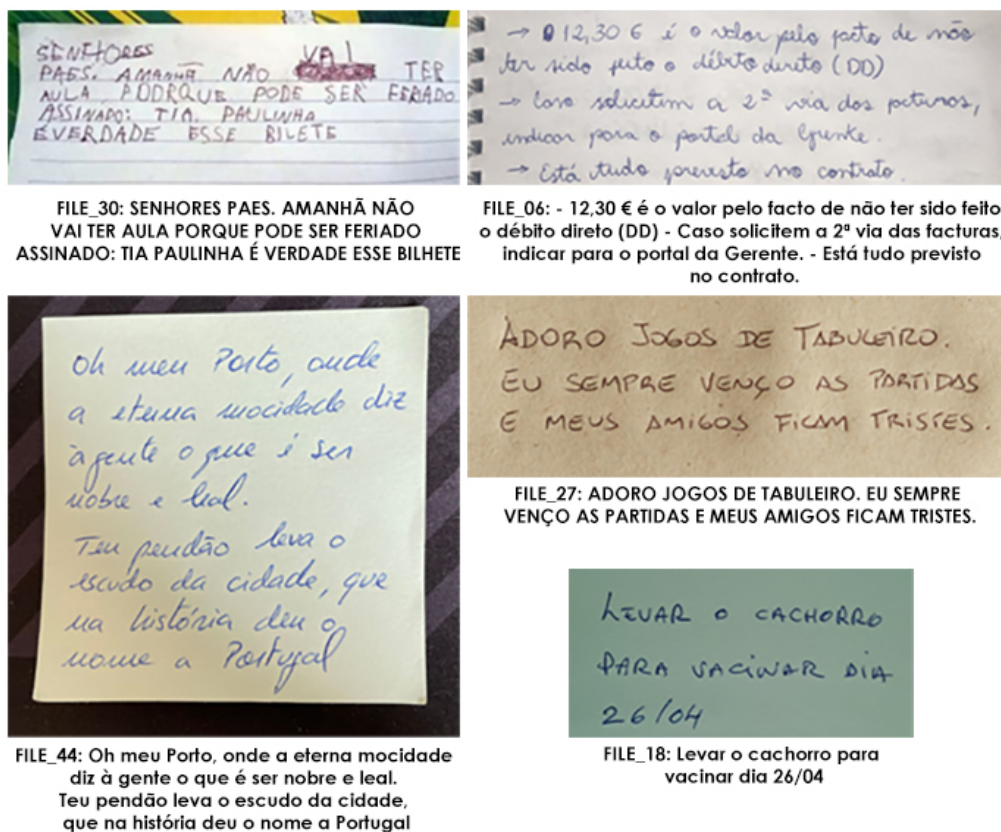 SENHORES VAI
PAES. AMANHÃ NÃO TER
AULA PODRQUE PODE SER FERIADO
ASSINADO: TIA. PAULINHA
É VERDADE ESSE BILETE
FILE_30: SENHORES PAES. AMANHÃ NÃO
VAI TER AULA PORQUE PODE SER FERIADO
ASSINADO: TIA PAULINHA É VERDADE ESSE BILHETE
→ 12,30 € é o valor pelo facto de não
ter sido feito o débito direto (DD)
→ Caso solicitem a 2ª via das facturas,
indicar para o portal da Gerente.
→ Está tudo previsto no contrato.
FILE_06: - 12,30 € é o valor pelo facto de não ter sido feito
o débito direto (DD) - Caso solicitem a 2ª via das facturas,
indicar para o portal da Gerente. - Está tudo previsto
no contrato.
Oh meu Porto, onde
a eterna mocidade diz
à gente o que é ser
nobre e leal.
Teu pendão leva o
escudo da cidade, que
na história deu o
nome a Portugal
FILE_44: Oh meu Porto, onde a eterna mocidade
diz à gente o que é ser nobre e leal.
Teu pendão leva o escudo da cidade,
que na história deu o nome a Portugal
ADORO JOGOS DE TABULEIRO.
EU SEMPRE VENÇO AS PARTIDAS
E MEUS AMIGOS FICAM TRISTES.
FILE_27: ADORO JOGOS DE TABULEIRO. EU SEMPRE
VENÇO AS PARTIDAS E MEUS AMIGOS FICAM TRISTES.
LEVAR O CACHORRO
PARA VACINAR DIA
26/04
FILE_18: Levar o cachorro para
vacinar dia 26/04